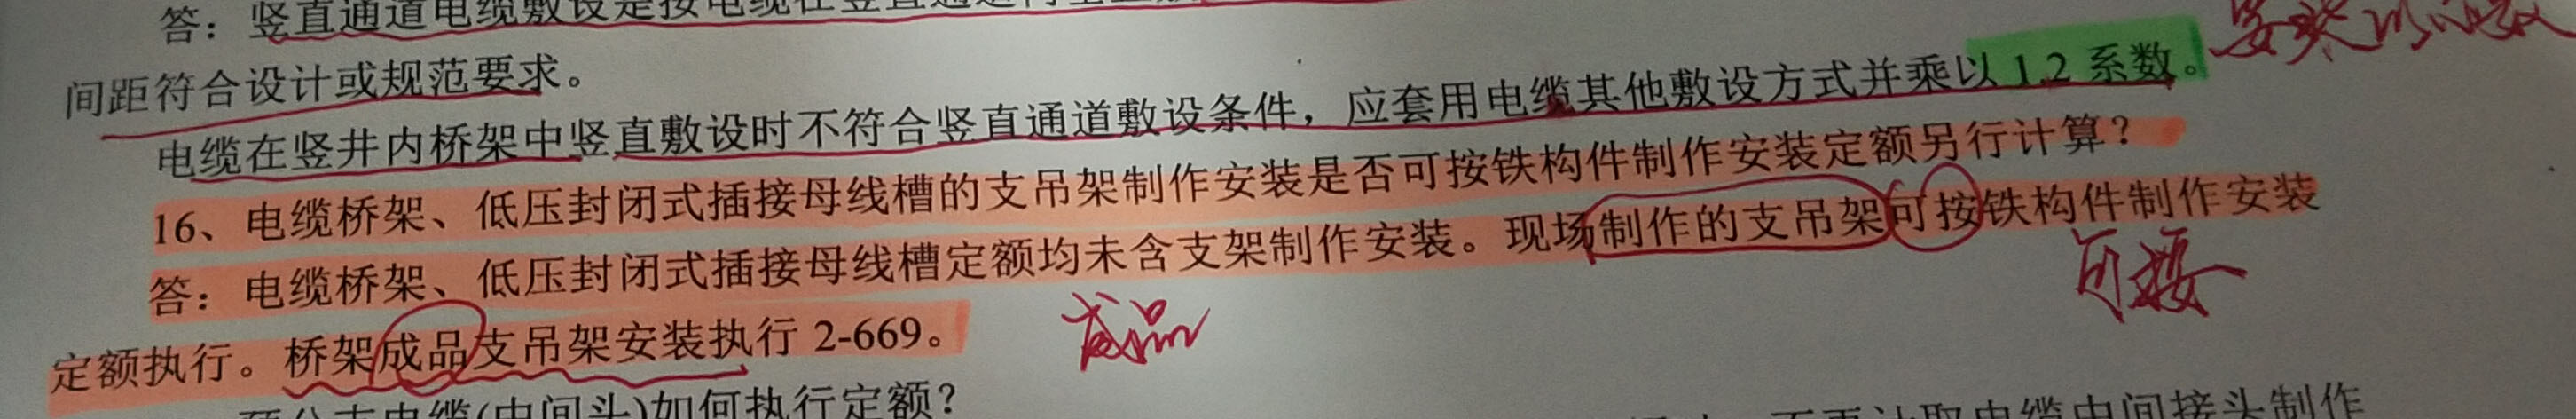 答：竖直通道电缆敷设是按电缆在竖直通道
间距符合设计或规范要求。
电缆在竖井内桥架中竖直敷设时不符合竖直通道敷设条件，应套用电缆其他敷设方式并乘以 1.2 系数。
16、电缆桥架、低压封闭式插接母线槽的支吊架制作安装是否可按铁构件制作安装定额另行计算？
答：电缆桥架、低压封闭式插接母线槽定额均未含支架制作安装。现场制作的支吊架可按铁构件制作安装
定额执行。桥架成品支吊架安装执行 2-669。
成品
分支电缆(中间头)如何执行定额？
电缆中间接头制作